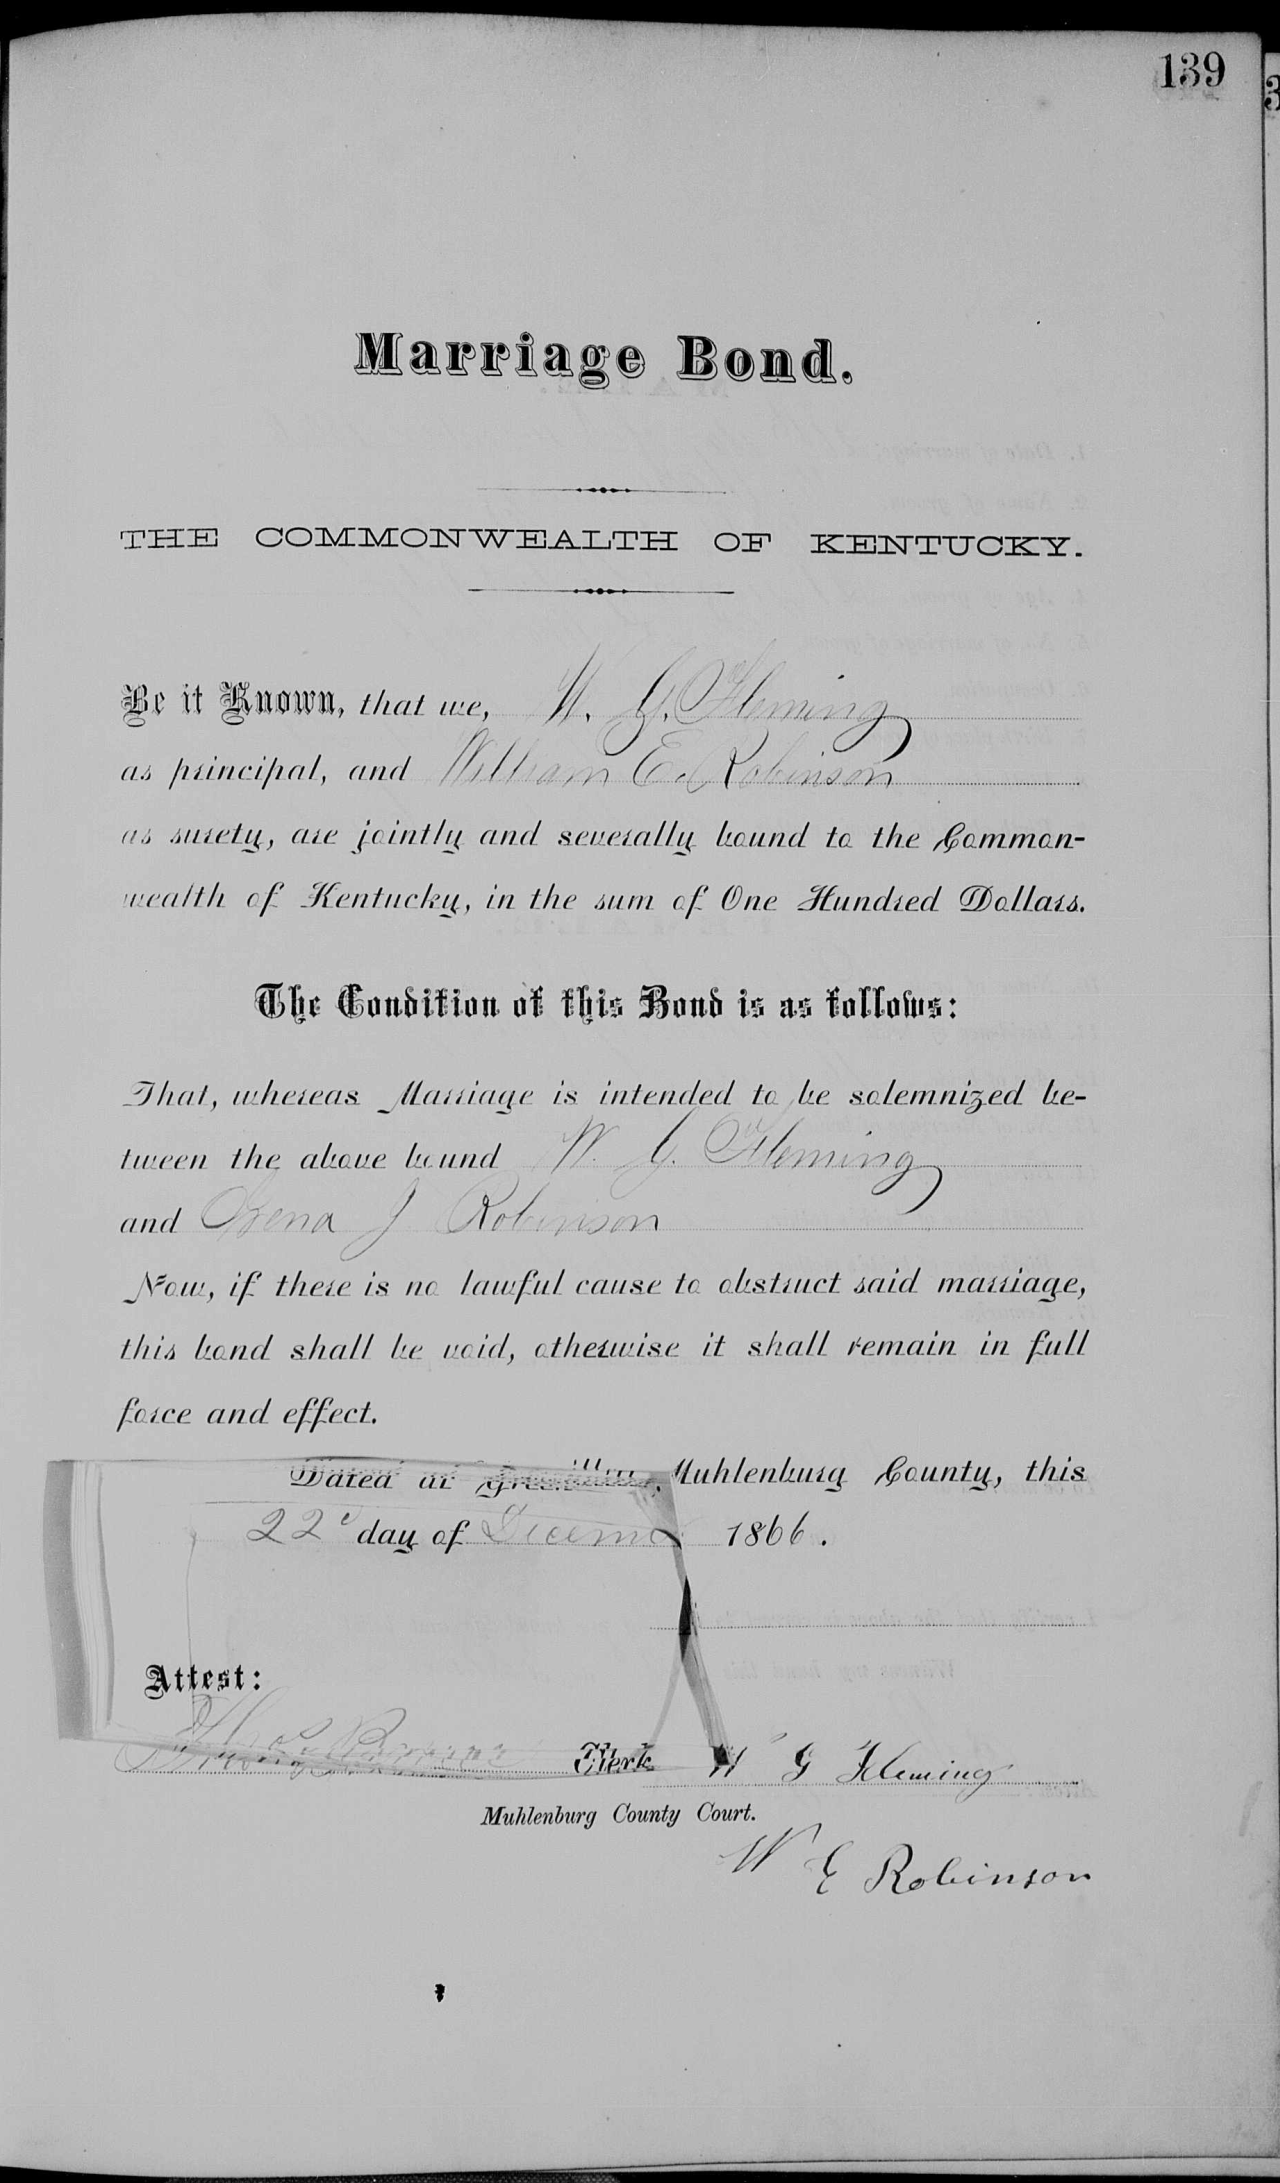 139
Marriage Bond.
THE COMMONWEALTH OF KENTUCKY.
Be it Known, that we, W. G. Fleming
as principal, and William E. Robinson
as surety, are jointly and severally bound to the Common-
wealth of Kentucky, in the sum of One Hundred Dollars.
The Condition of this Bond is as follows:
That, whereas Marriage is intended to be solemnized be-
tween the above bound W. G. Fleming
and Irena J Robinson
Now, if there is no lawful cause to obstruct said marriage,
this bond shall be void, otherwise it shall remain in full
force and effect.
Dated at Greenville, Muhlenburg County, this
22d day of Decem 1866.
Attest:
Clerk W G Fleming
Muhlenburg County Court.
W E Robinson